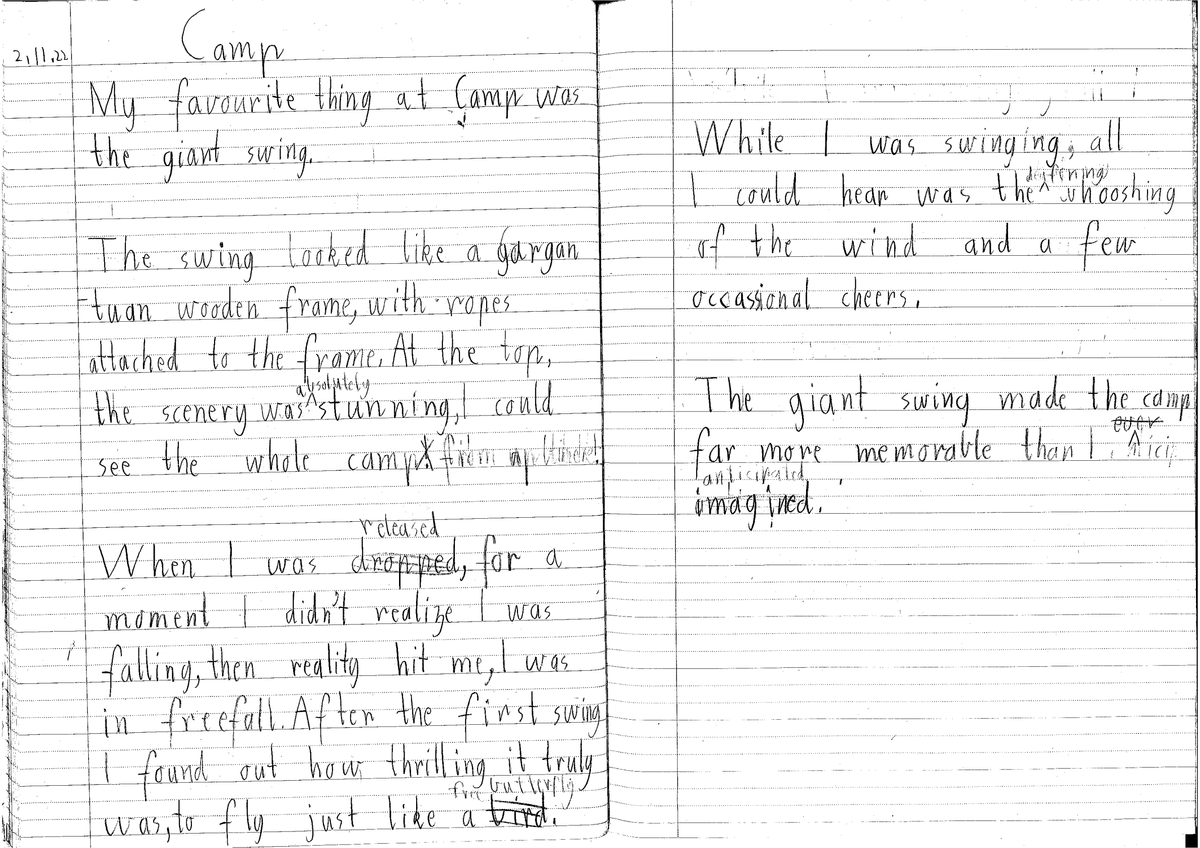 Camp
2.11.22
My favourite thing at Camp was
the giant swing.
The swing looked like a gargan
-tuan wooden frame, with ropes
attached to the frame. At the top,
absolutely
the scenery was ^ stunning, I could
see the whole camp
released
When I was dropped, for a
moment I didn't realize I was
falling, then reality hit me, I was
in freefall. After the first swing
I found out how thrilling it truly
free butterfly
was, to fly just like a bird.
While I was swinging, all
deafening
I could hear was the ^ whooshing
of the wind and a few
occassional cheers.
The giant swing made the camp
ever
far more memorable than I ^
anticipated
imagined.